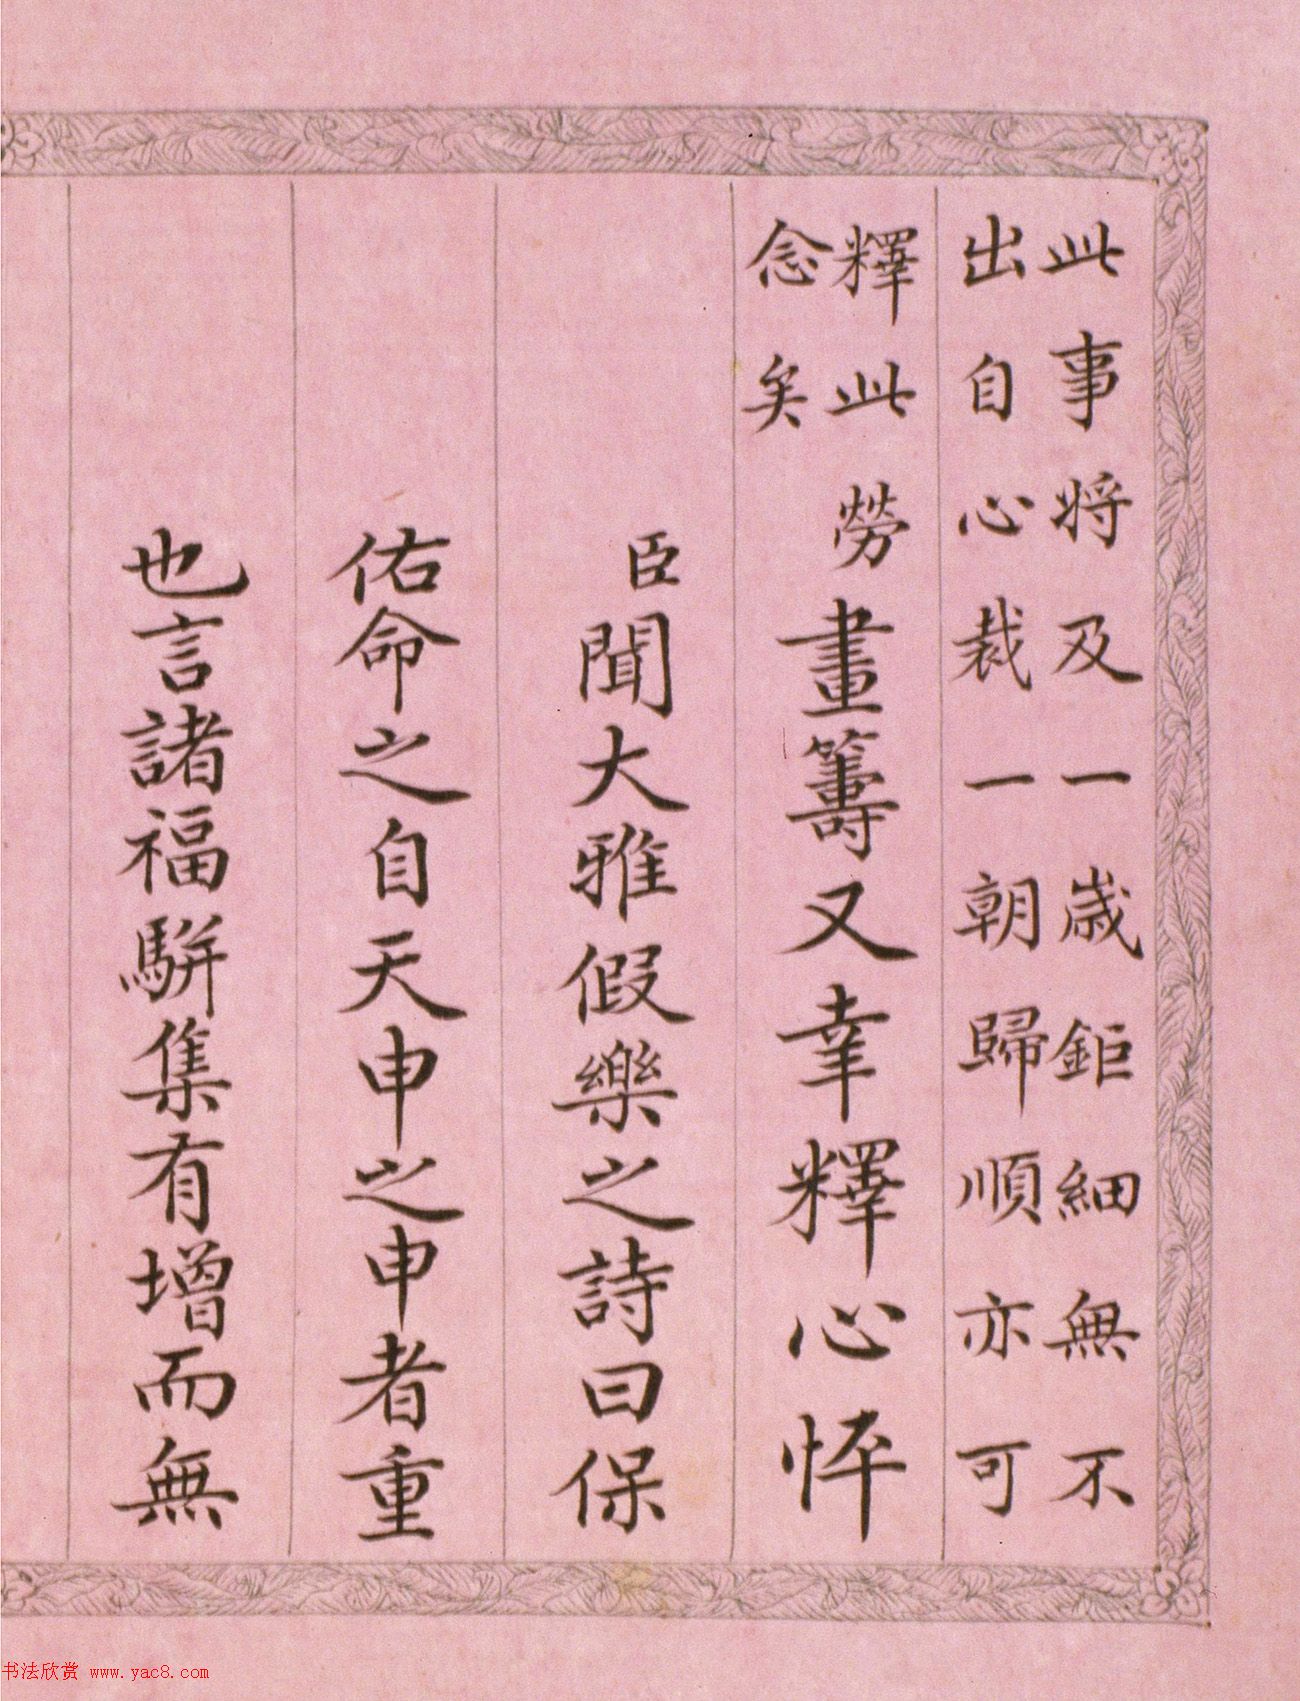 此事將及一歲鉅細無不
出自心裁一朝歸順亦可
釋此勞
念矣
畫籌又幸釋心悴
臣聞大雅假樂之詩曰保
佑命之自天申之申者重
也言諸福駢集有增而無
书法欣赏 www.yac8.com